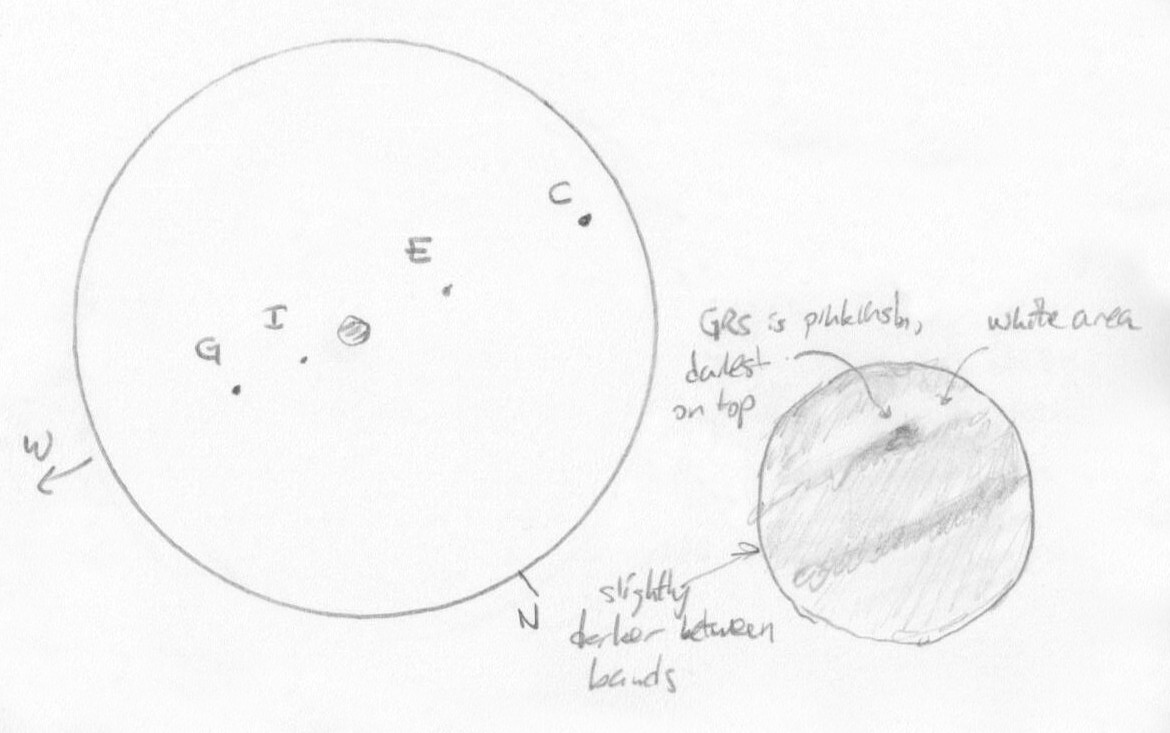 C
E
I
G
W
N
GRS is pinkinsh,
darkest
on top
white area
slightly
darker between
bands